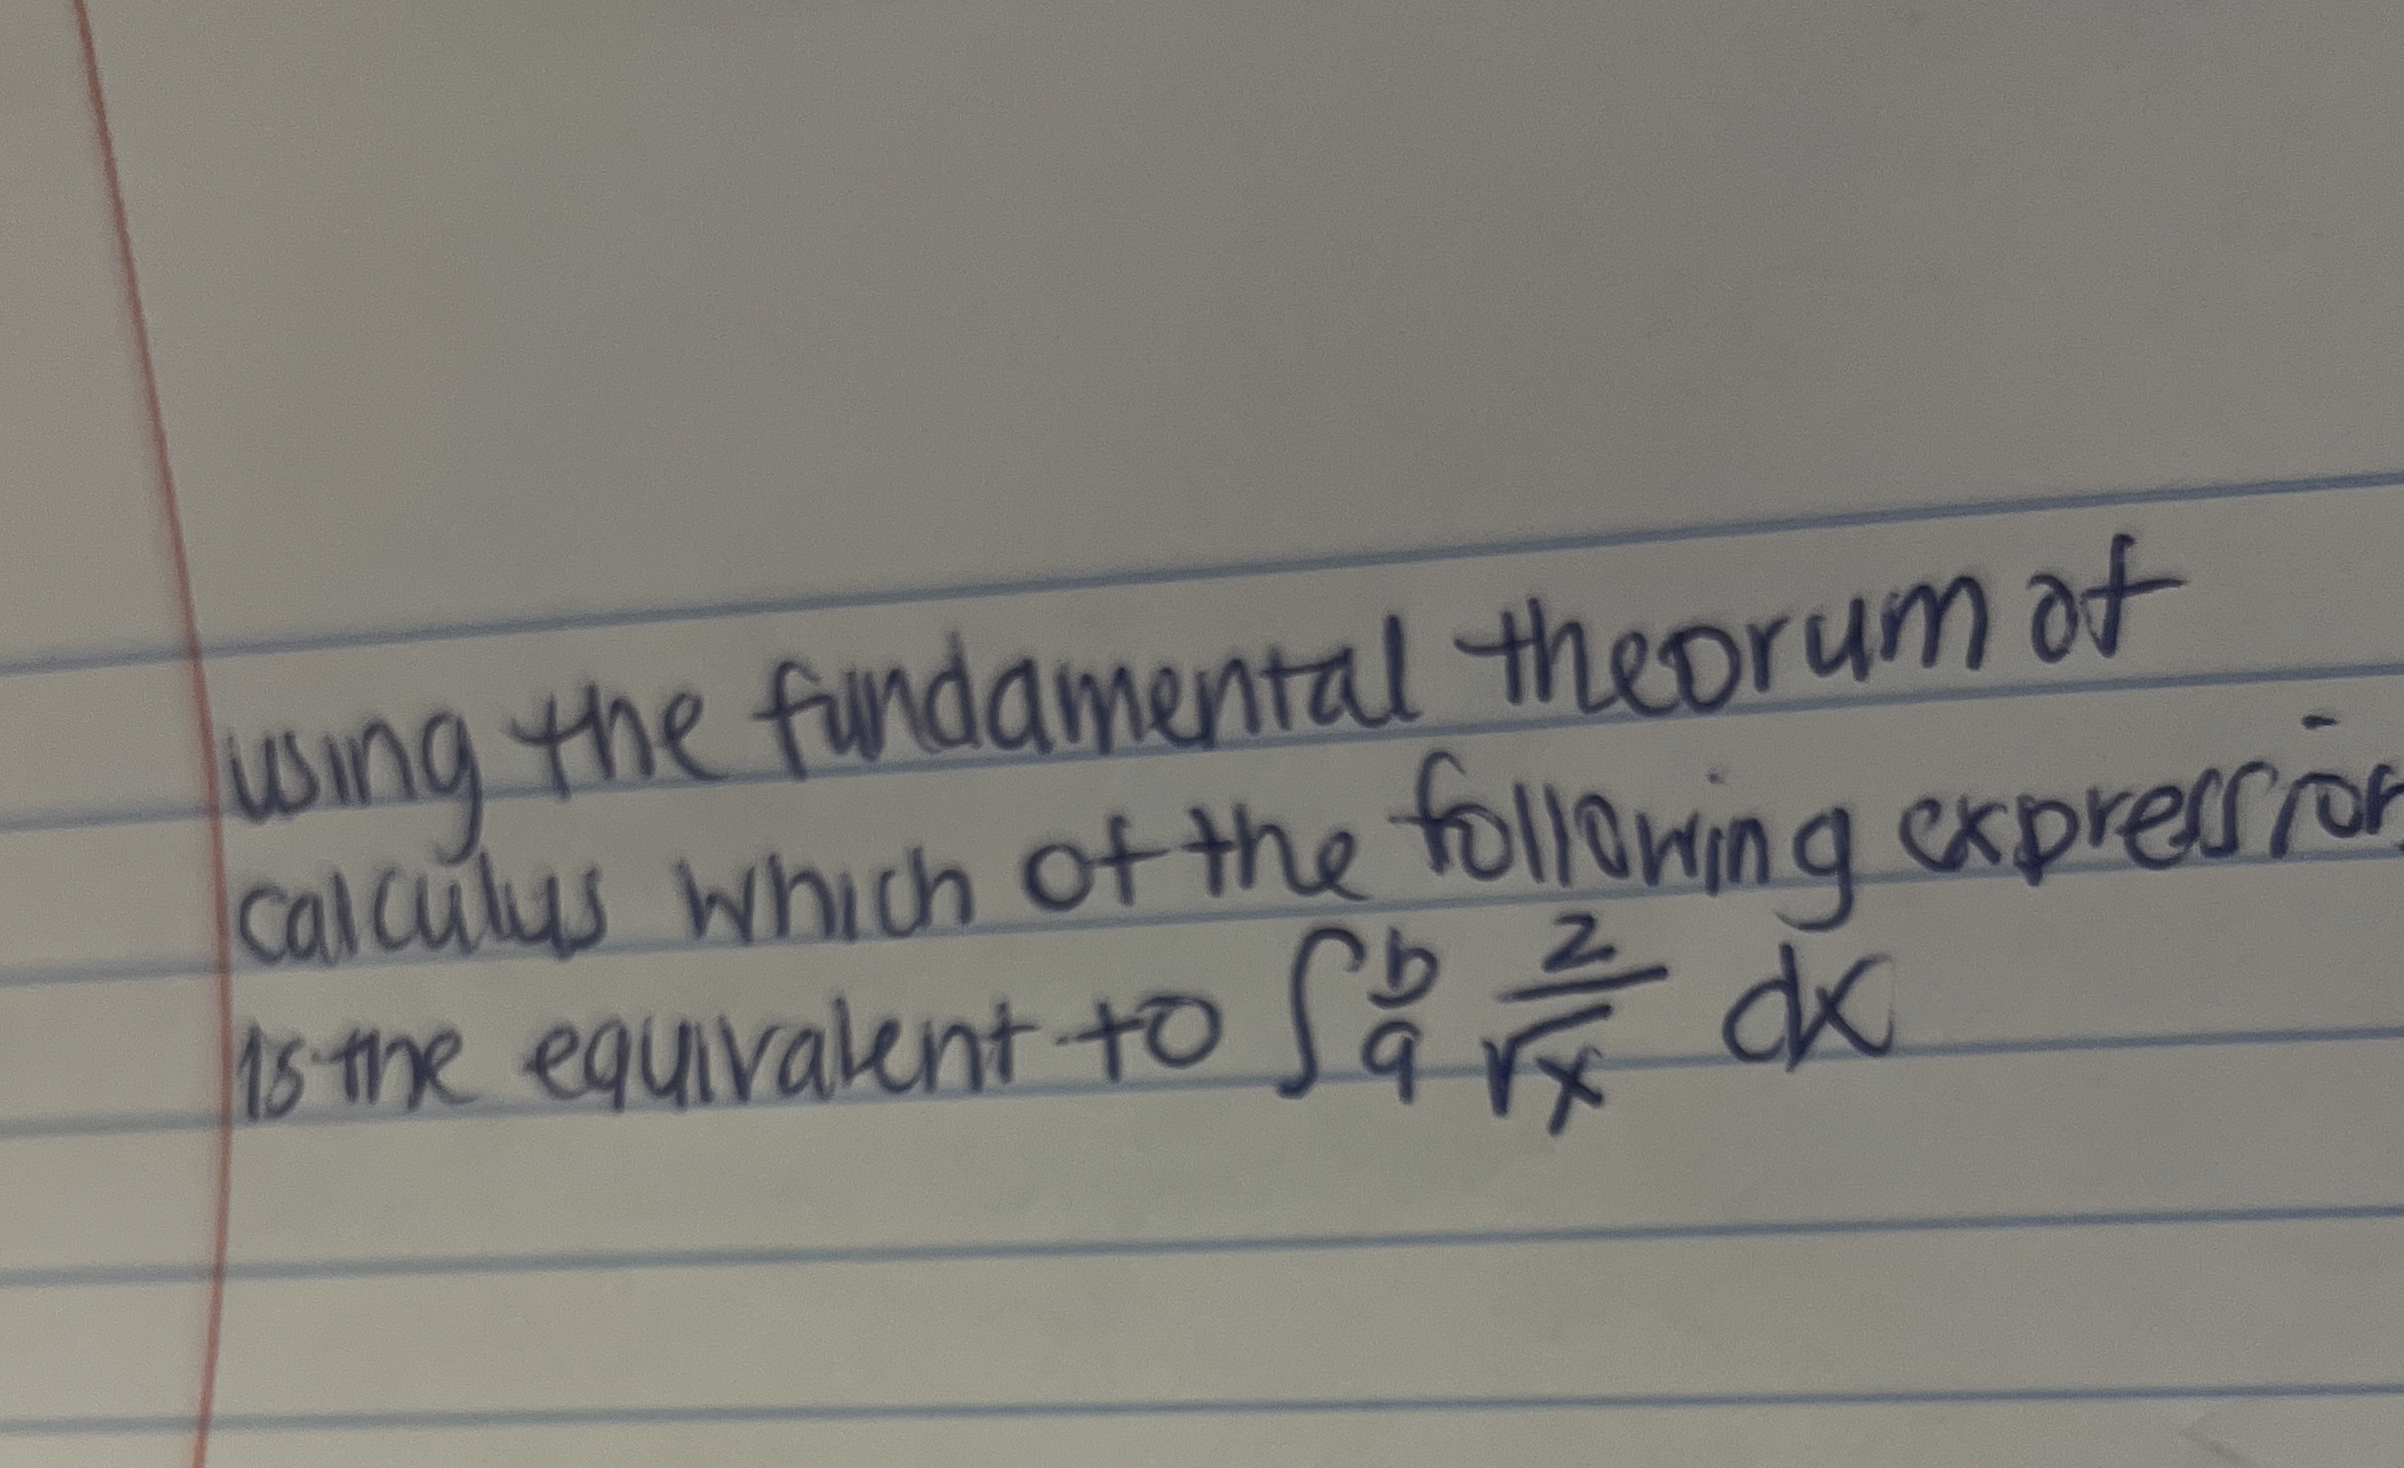 using the fundamental theorum of
calculus which of the following expression
is the equivalent to ∫ᵇₐ 2/√x dx